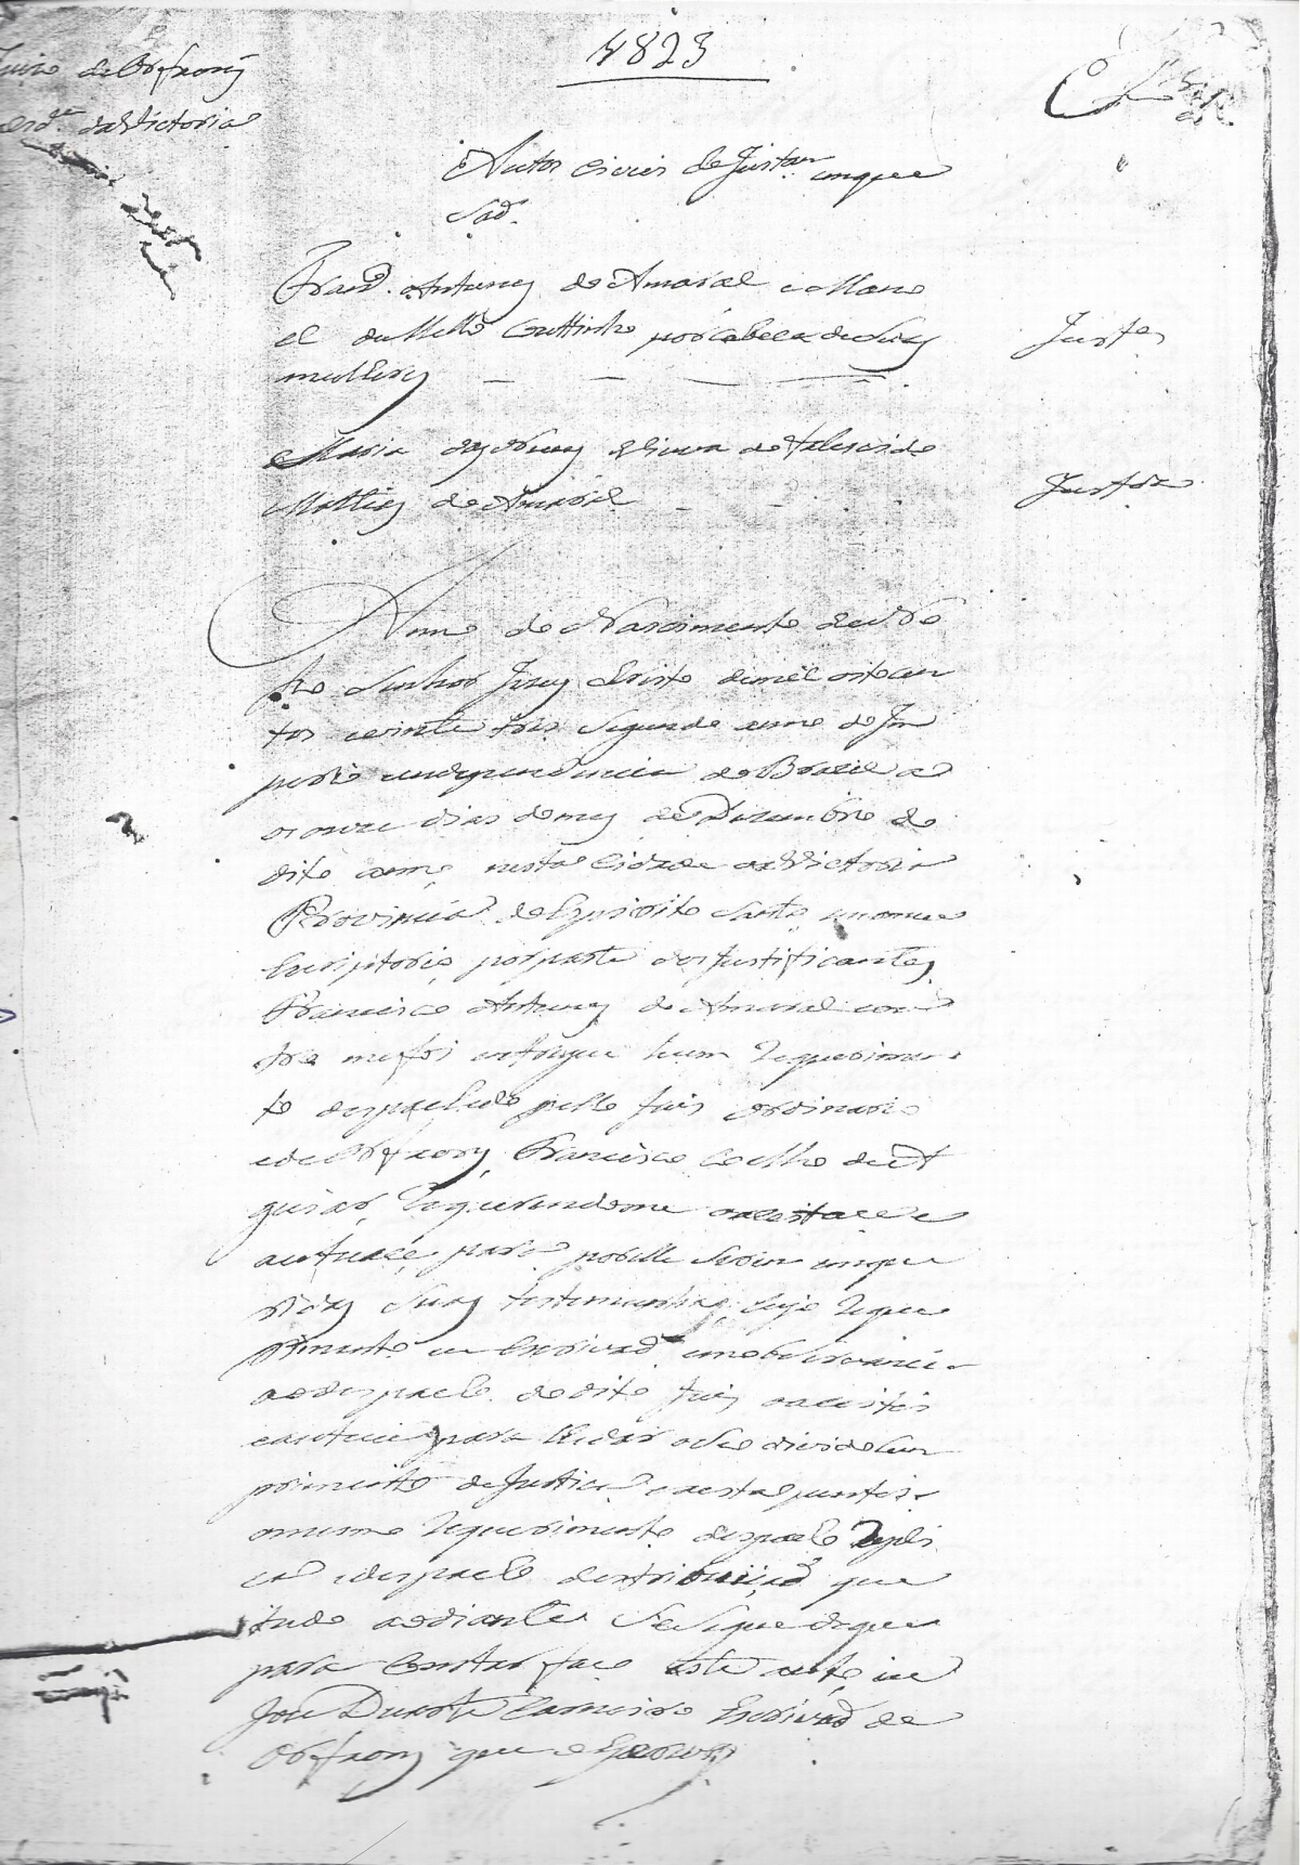 1823
Juizo de Orfaons
da Victoria
Autos Civeis de Justam. em que
Saõ
Franco. Antunes do Amaral e Mano
el de Mello Couttinho por Cabeca de Suas
mulheres
Justes
Maria das Neves Viuva do falescido
Mathias do Amaral
Justda
Anno do Nascimento de No
sso Senhor Jesus Christo de mil oitocen
tos e vinte tres Segundo anno do Im
perio e independencia do Brazil a
os onze dias do mes de Dezembro do
dito anno nesta Cidade da Victoria
Provincia do Espirito Santo em meu
Escriptorio por parte dos Justificantes
Francisco Antunes do Amaral e ou
tro me foi entregue hum requerimen
to despachado pello Juis Ordinario
e de Orfaons Francisco Coelho de A
guiar requerendome aceitace e
autuace para por elle Serem inque
ridas Suas testemunhas cujo reque
rimento eu Escrivaõ em observanci
a do despacho do dito Juis o aceitei
e autuei para lhe dar o Seo divido Cum
primento de Justica e aesta juntei
o mesmo requerimento despacho repli
ca e despacho destribuiçaõ que
tudo ao diante Se Segue do que
para Constar faço este auto eu
Joze Duarte Carneiro Escrivaõ de
Orfaons que o Escrevy